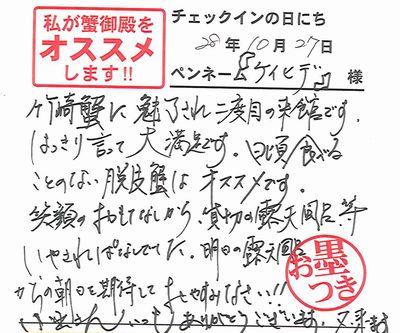 私が蟹御殿を
オススメ
します!!
チェックインの日にち
28年10月27日
ペンネーム『ケイヒデ』様
竹崎蟹に魅了され二度目の来館です。
はっきり言って大満足です。日頃食べる
ことのない脱皮蟹はオススメです。
笑顔のおもてなしから、貸切の露天風呂等
いやされぱなしでした。明日の露天風呂
からの朝日を期待しておやすみなさい!!
お墨
つき
いつもありがとうございます。又来ます